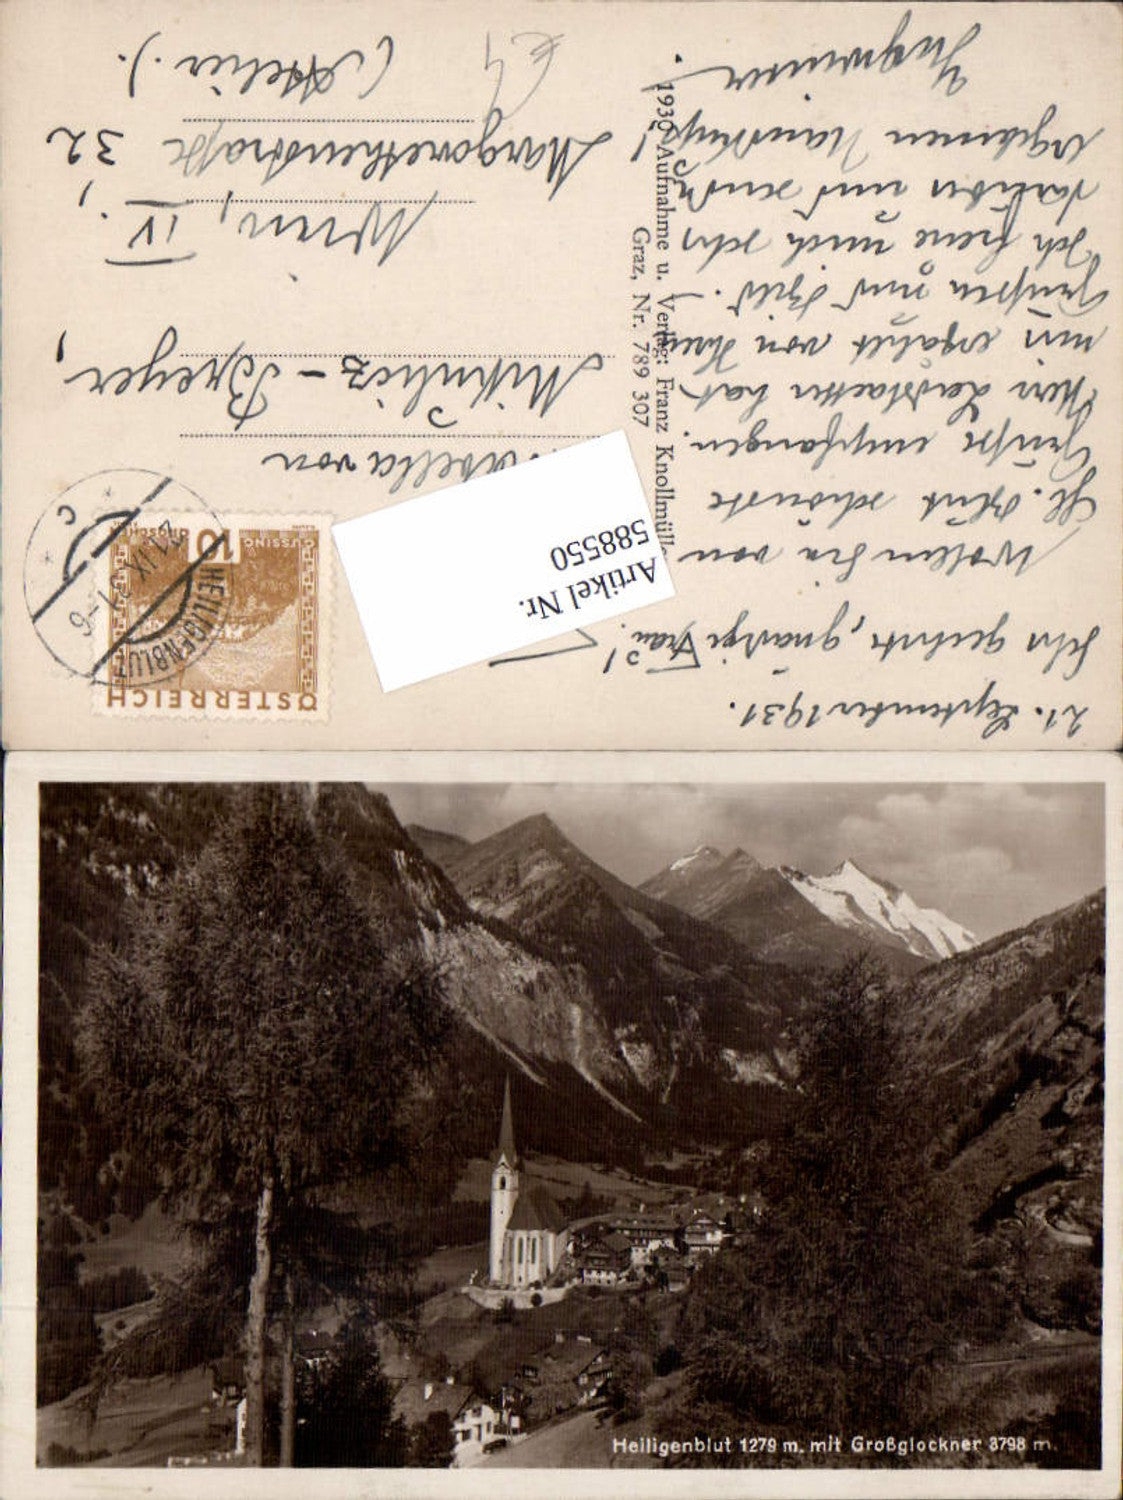 21. September 1931.
Sehr geehrte, gnädige Frau!
Wollen Sie von
Hl. Blut schönste
Grüße empfangen.
Herr Ledstaetter hat
mir erzählt von Ihren
Grüßen und Bild.
Ich freue mich sehr
darüber und sende
ergebenen Handkuß!
1930 Aufnahme u. Verlag: Franz Knollmülle
Graz, Nr. 789 307
Artikel Nr.
588550
ÖSTERREICH
GÜSSING
10
GROSCHEN
HEILIGENBLUT
21.IX.31-9
c
Isabella von
Mikulicz-Breyer,
Wien, IV.,
Margarethenstraße 32
(Atelier.).
€4
Heiligenblut 1279 m. mit Großglockner 3798 m.